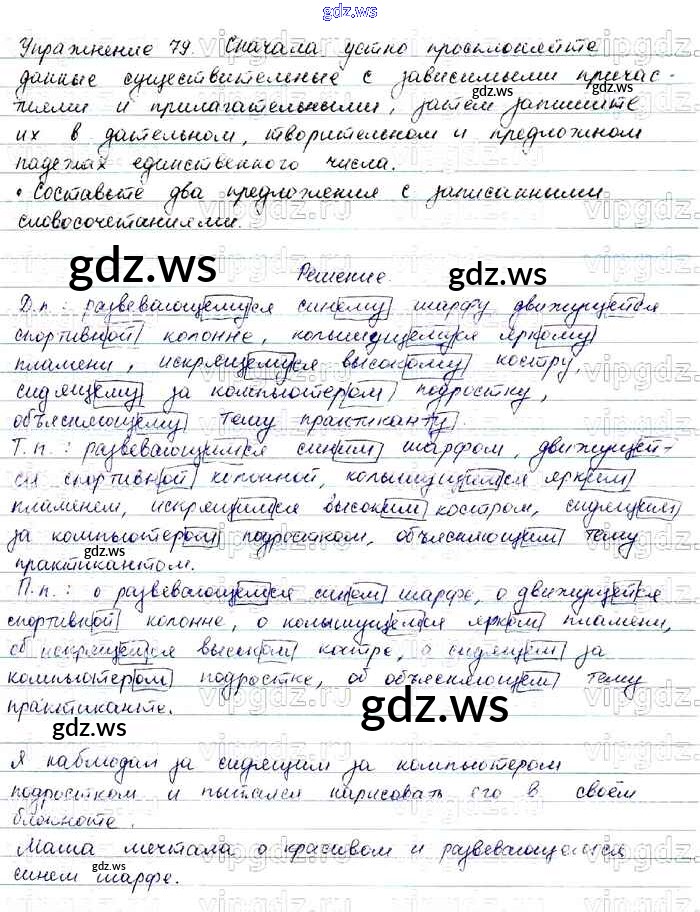 gdz.ws
Упражнение 79. Сначала устно просклоняйте
данные существительные с зависимыми причас-
тиями и прилагательными, затем запишите
их в дательном, творительном и предложном
падежах единственного числа.
• Составьте два предложения с записанными
словосочетаниями.
Решение.
Д.п.: развевающемуся синему шарфу, движущейся
спортивной колонне, колышущемуся яркому
пламени, искрящемуся высокому костру,
сидящему за компьютером подростку,
объясняющему тему практиканту.
Т.п.: развевающимся синим шарфом, движущей-
ся спортивной колонной, колышущимся ярким
пламенем, искрящимся высоким костром, сидящим
за компьютером подростком, объясняющим тему
практикантом.
П.п.: о развевающемся синем шарфе, о движущейся
спортивной колонне, о колышущемся ярком пламени,
об искрящемся высоком костре, о сидящем за
компьютером подростке, об объясняющем тему
практиканте.
Я наблюдал за сидящим за компьютером
подростком и пытался нарисовать его в своём
блокноте.
Маша мечтала о красивом и развевающемся
синем шарфе.